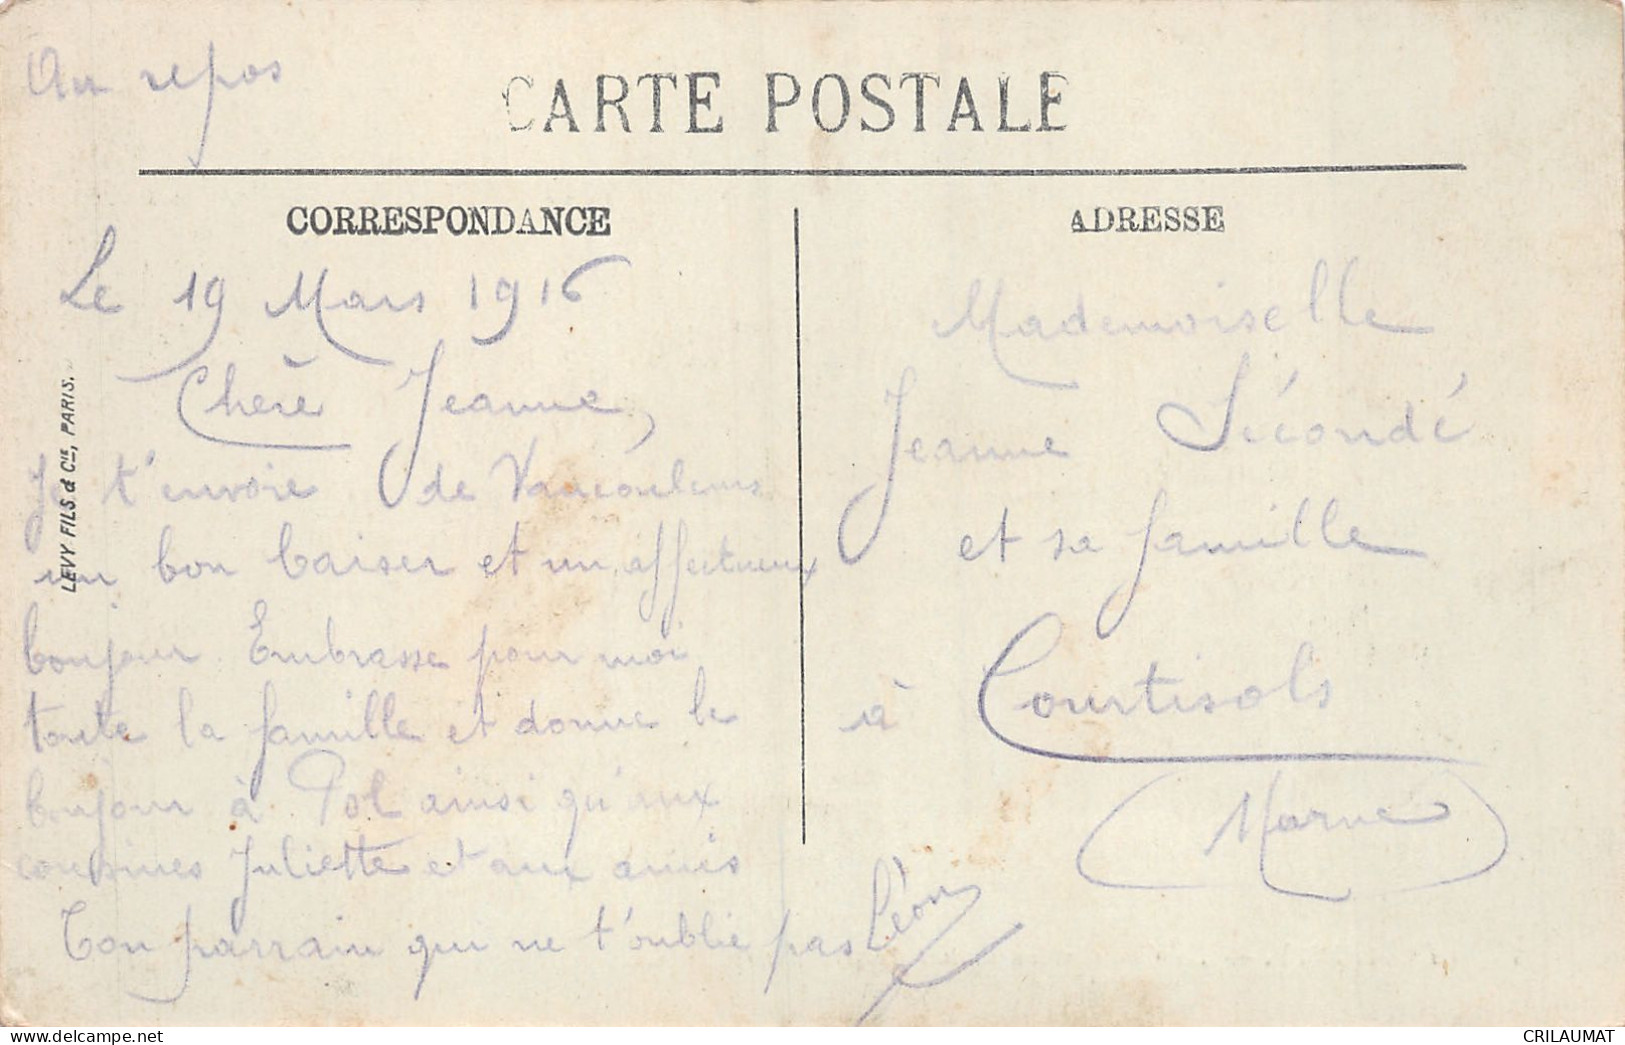 Au repos
CARTE POSTALE
CORRESPONDANCE
ADRESSE
Le 19 Mars 1916
Chère Jeanne,
Je t'envoie de Vaucouleurs
un bon baiser et un affectueux
bonjour Embrasse pour moi
toute la famille et donne le
bonjour à Pol ainsi qu'aux
cousines Juliette et aux amis
Ton parrain qui ne t'oublie pas
Léon
Mademoiselle
Jeanne Sécondé
et sa famille
à Courtisols
(Marne)
LEVY FILS & Cie, PARIS.
CRILAUMAT